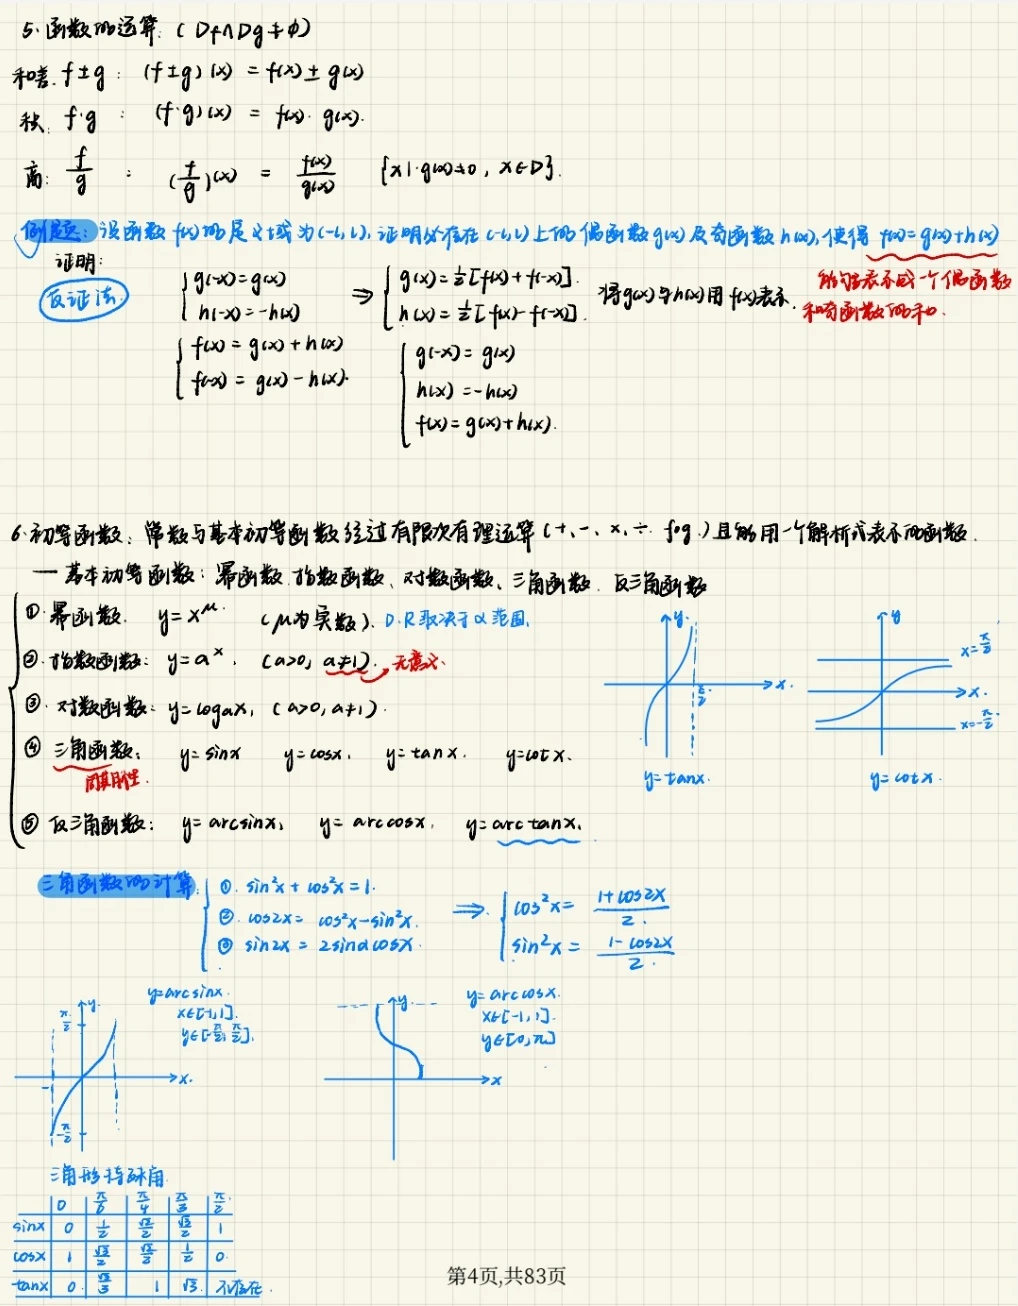 5. 函数的运算. (Df∩Dg≠φ)
和差. f±g : (f±g)(x) = f(x)±g(x)
积. f·g : (f·g)(x) = f(x)·g(x).
商: f/g : (f/g)(x) = f(x)/g(x) {x|·g(x)≠0, x∈D}.
例题: 设函数 f(x)的定义域为(-l,l), 证明必存在(-l,l)上的偶函数g(x)及奇函数h(x), 使得 f(x)=g(x)+h(x)
证明:
反证法.
{ g(-x)=g(x)
h(-x)=-h(x)
⇒ { g(x)=½[f(x)+f(-x)].
h(x)=½[f(x)-f(-x)].
将g(x)与h(x)用f(x)表示.
能够表示成一个偶函数
和奇函数的和.
{ f(x)=g(x)+h(x)
f(-x)=g(x)-h(x).
{ g(-x)=g(x)
h(-x)=-h(x)
f(x)=g(x)+h(x).
6.初等函数: 常数与基本初等函数经过有限次有理运算(+、-、×、÷ fog.)且能用一个解析式表示的函数.
一 基本初等函数: 幂函数、指数函数、对数函数、三角函数、反三角函数
①.幂函数. y=x^μ. (μ为实数). D.R取决于α范围.
②.指数函数: y=a^x. (a>0, a≠1). 无意义.
③.对数函数: y=logₐx, (a>0, a≠1).
④ 三角函数: y=sinx y=cosx, y=tanx. y=cotx.
周期性.
⑤ 反三角函数: y=arcsinx, y=arccosx. y=arctanx.
y.
x.
π/2
y=tanx.
y
x=π/2
x.
x=-π/2
y=cotx.
三角函数的计算: { ①. sin²x+cos²x=1.
②. cos2x= cos²x-sin²x.
③ sin2x = 2sinαcosx.
⇒. { cos²x= (1+cos2x)/2.
sin²x = (1-cos2x)/2.
y=arcsinx.
x∈[-1,1].
y∈[-π/2, π/2].
π/2
y.
x.
-π/2
y.
x
y=arccosx.
x∈[-1,1].
y∈[0,π]
三角形特殊角.
0 π/6 π/4 π/3 π/2
sinx 0 1/2 √2/2 √3/2 1
cosx 1 √3/2 √2/2 1/2 0
tanx 0 √3/3 1 √3 不存在.
第4页,共83页